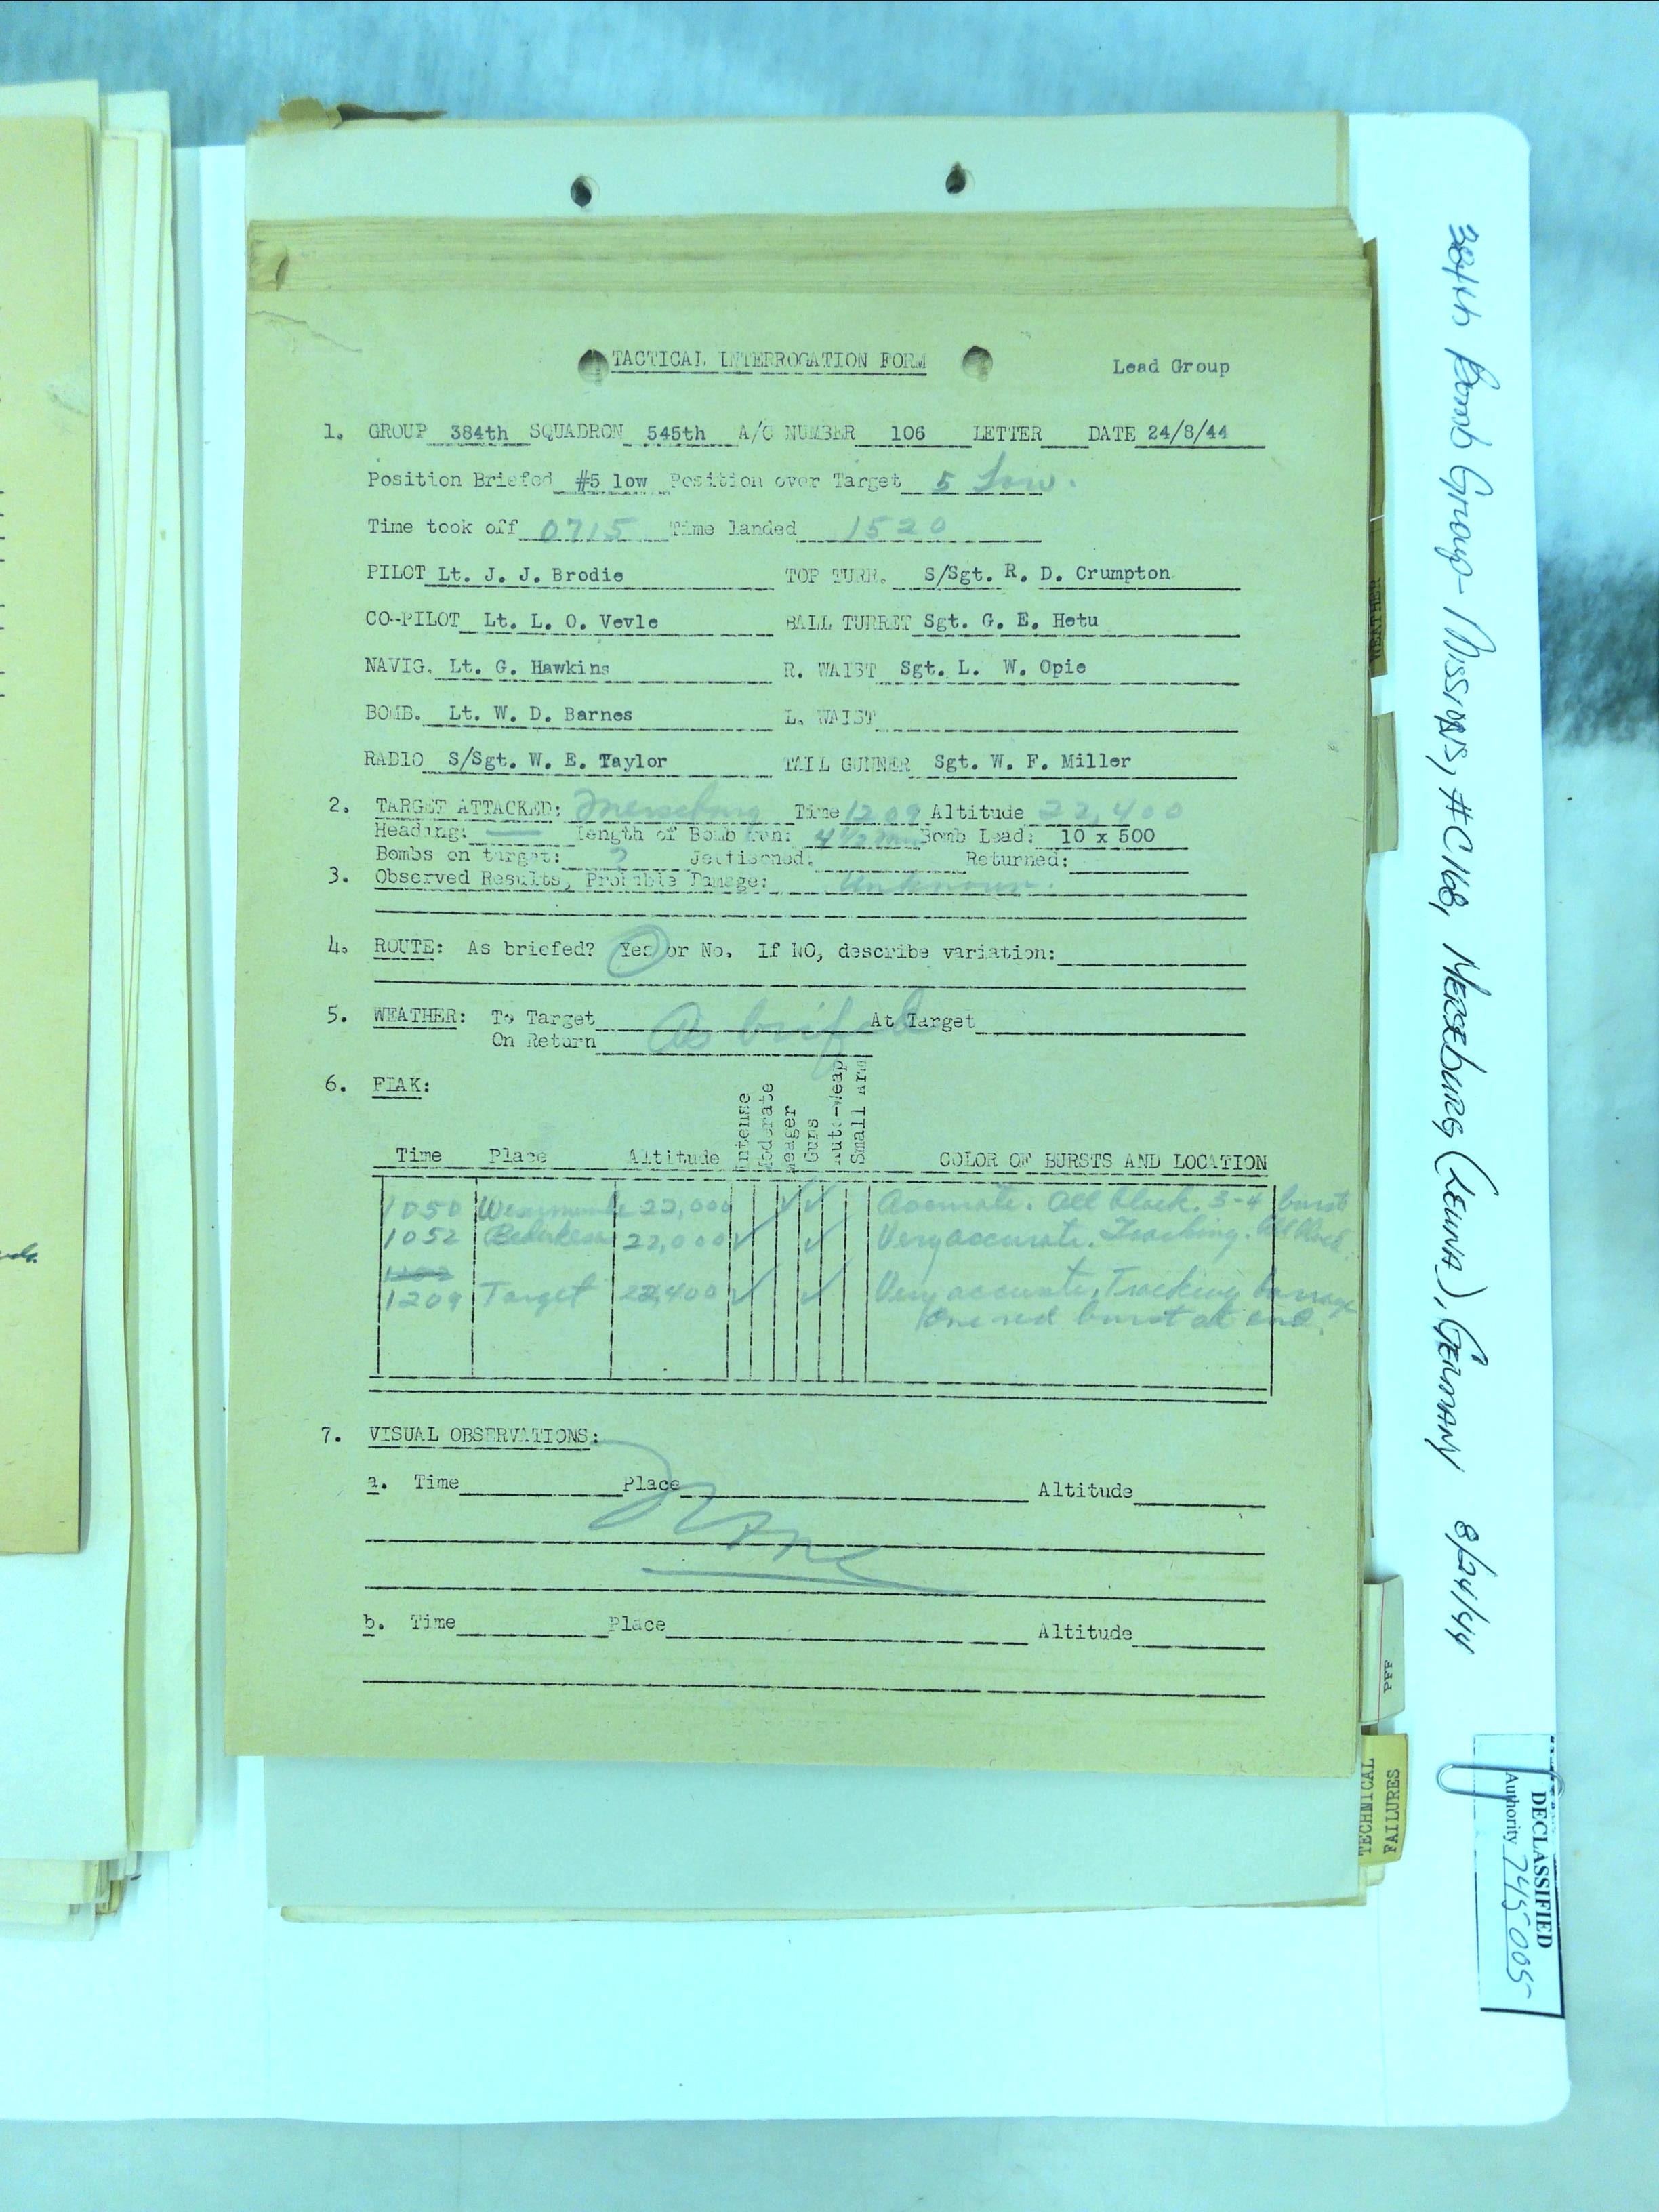 TACTICAL INTERROGATION FORM Lead Group
1. GROUP 384th SQUADRON 545th A/C NUMBER 106 LETTER DATE 24/8/44
Position Briefed #5 low Position over Target 5 Low.
Time took off 0715 Time landed 1520
PILOT Lt. J. J. Brodie TOP TURR. S/Sgt. R. D. Crumpton
CO-PILOT Lt. L. O. Vevle BALL TURRET Sgt. G. E. Hetu
NAVIG. Lt. G. Hawkins R. WAIST Sgt. L. W. Opie
BOMB. Lt. W. D. Barnes L. WAIST
RADIO S/Sgt. W. E. Taylor TAIL GUNNER Sgt. W. F. Miller
2. TARGET ATTACKED: Merseburg Time 1209 Altitude 22,400
Heading: — Length of Bomb Run: 4 1/2 min Bomb Load: 10 x 500
Bombs on target: ? Jettisoned: Returned:
3. Observed Results, Probable Damage: Unknown.
4. ROUTE: As briefed? Yes or No. If NO, describe variation:
5. WEATHER: To Target At Target
As brifed
On Return
6. FLAK:
Intense
Moderate
Meager
Guns
Auto-Weap
Small Arm
Time Place Altitude COLOR OF BURSTS AND LOCATION
1050 22,000 ✓ ✓ Accurate. All black. 3-4 burst
1052 22,000 ✓ ✓ Very accurate. Tracking. All black.
1209 Target 22,400 ✓ ✓ Very accurate, Tracking barrage
One red burst at end.
7. VISUAL OBSERVATIONS:
a. Time Place Altitude
None
b. Time Place Altitude
384th Bomb Group - Missions, #C168, MERSEBURG (LEUNA), GERMANY 8/24/44
WEATHER
PFF
TECHNICAL
FAILURES
DECLASSIFIED
Authority 745005